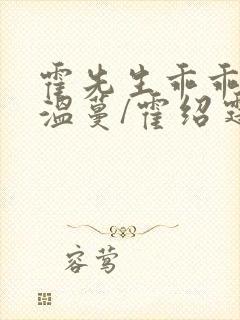 霍先生乖乖
温蔓/霍绍
容莺